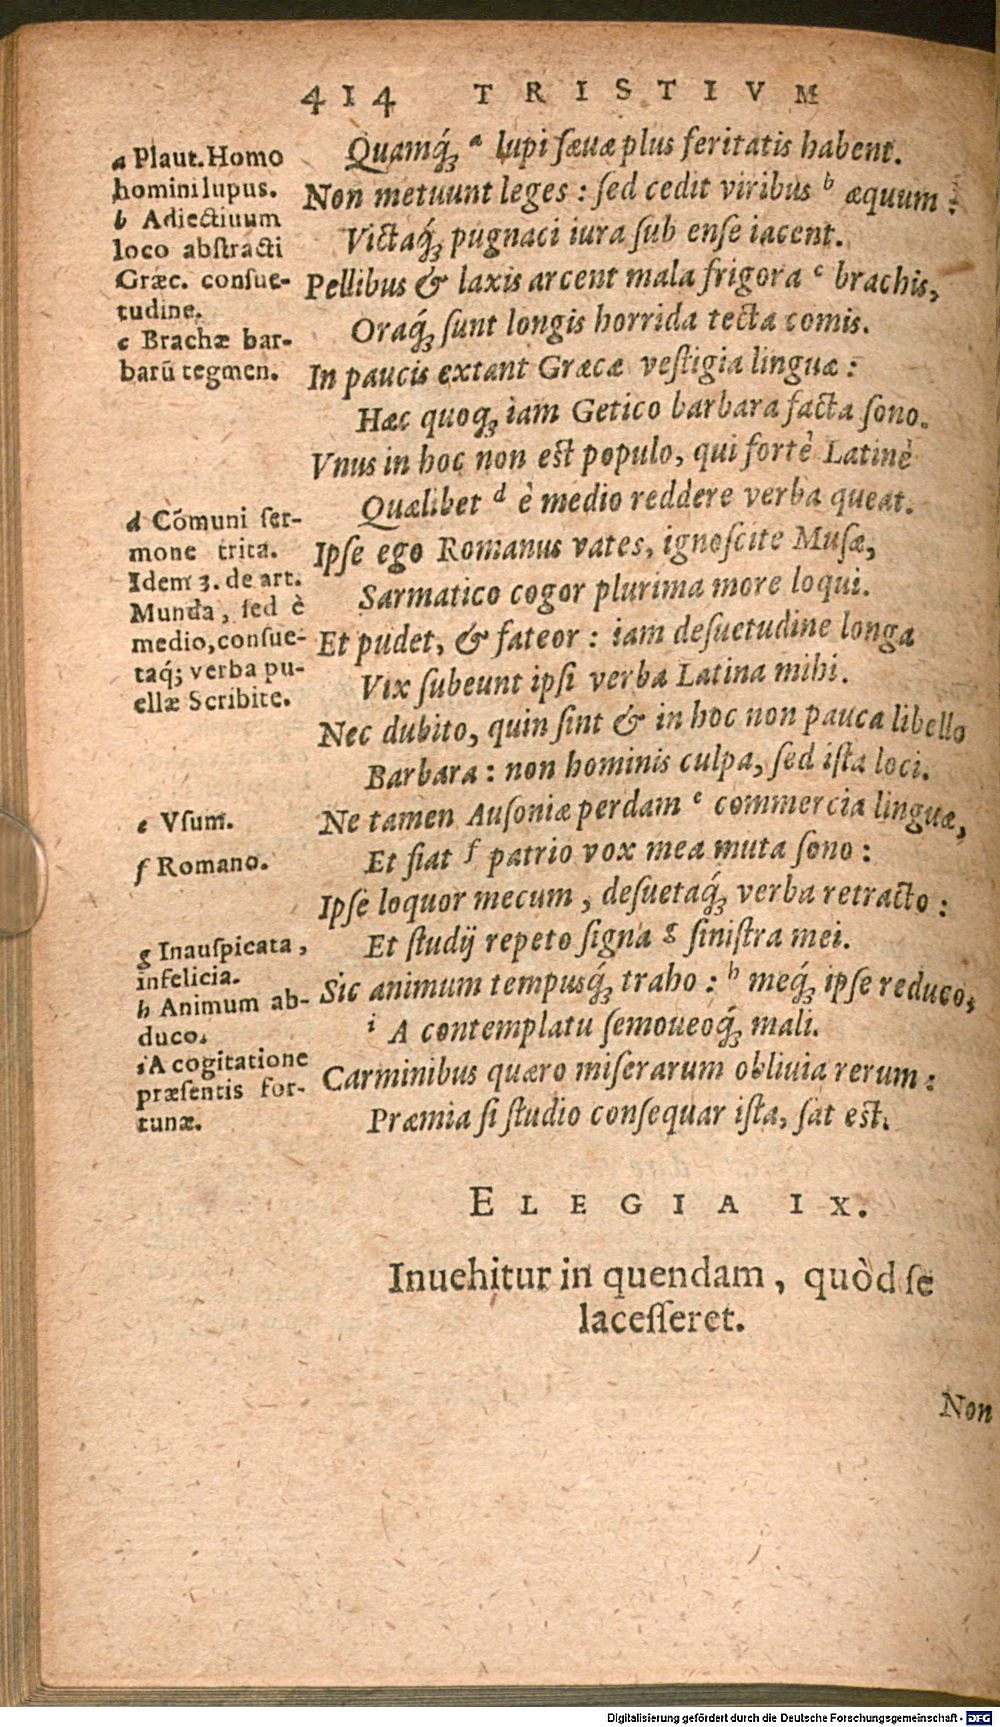 414 TRISTIVM
Quamq́; a lupi sæuæ plus feritatis habent.
Non metuunt leges : sed cedit viribus b æquum :
Victaq́; pugnaci iura sub ense iacent.
Pellibus & laxis arcent mala frigora c brachis,
Oraq́; sunt longis horrida tecta comis.
In paucis extant Græcæ vestigia linguæ :
Hæc quoq; iam Getico barbara facta sono.
Vnus in hoc non est populo, qui fortè Latinè
Quælibet d è medio reddere verba queat.
Ipse ego Romanus vates, ignoscite Musæ,
Sarmatico cogor plurima more loqui.
Et pudet, & fateor : iam desuetudine longa
Vix subeunt ipsi verba Latina mihi.
Nec dubito, quin sint & in hoc non pauca libello
Barbara : non hominis culpa, sed ista loci.
Ne tamen Ausoniæ perdam e commercia linguæ,
Et fiat f patrio vox mea muta sono :
Ipse loquor mecum, desuetaq́; verba retracto :
Et studij repeto signa g sinistra mei.
Sic animum tempusq́; traho : h meq́; ipse reduco,
i A contemplatu semoueoq́; mali.
Carminibus quæro miserarum obliuia rerum :
Præmia si studio consequar ista, sat est.
a Plaut. Homo
homini lupus.
b Adiectiuum
loco abstracti
Græc. consue-
tudine.
c Brachæ bar-
barũ tegmen.
d Cõmuni ser-
mone trita.
Idem 3. de art.
Munda, sed è
medio, consue-
taq́; verba pu-
ellæ Scribite.
e Vsum.
f Romano.
g Inauspicata,
infelicia.
h Animum ab-
duco.
i A cogitatione
præsentis for-
tunæ.
ELEGIA IX.
Inuehitur in quendam, quòd se
lacesseret.
Non
Digitalisierung gefördert durch die Deutsche Forschungsgemeinschaft - DFG